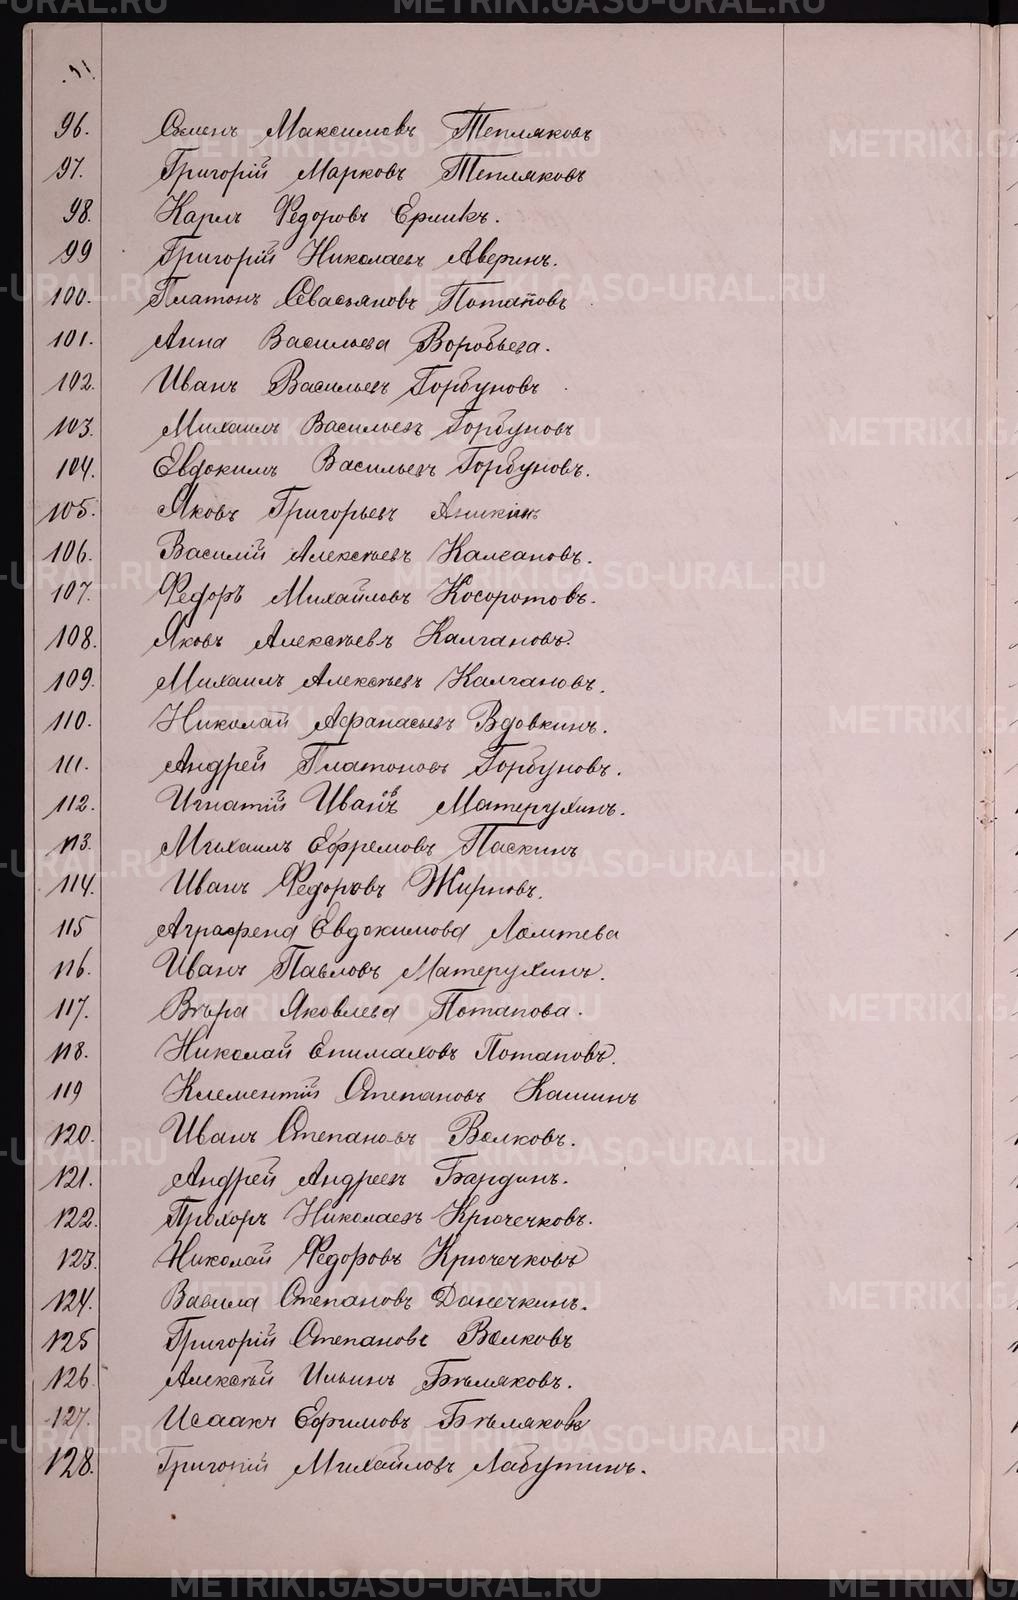 96. Семенъ Максимовъ Тепляковъ
97. Григорій Марковъ Тепляковъ
98. Карлъ Федоровъ Ерликъ.
99 Григорій Николаевъ Аверинъ.
100. Платонъ Севасьяновъ Потаповъ
101. Анна Васильева Воробьева.
102. Иванъ Васильевъ Горбуновъ
103. Михаилъ Васильевъ Горбуновъ
104. Евдокимъ Васильевъ Горбуновъ.
105. Яковъ Григорьевъ Аникинъ
106. Василій Алексѣевъ Калгановъ.
107. Федоръ Михайловъ Косоротовъ.
108. Яковъ Алексѣевъ Калгановъ.
109. Михаилъ Алексѣевъ Калгановъ.
110. Николай Афанасьевъ Вдовкинъ.
111. Андрей Платоновъ Горбуновъ.
112. Игнатій Иванъ Матерухинъ.
113. Михаилъ Ефремовъ Паскинъ
114. Иванъ Федоровъ Жирновъ.
115 Аграфена Евдокимова Ломтева
116. Иванъ Павловъ Матерухинъ.
117. Вѣра Яковлева Потапова.
118. Николай Епимаховъ Потаповъ.
119 Клементій Степановъ Кашинъ
120. Иванъ Степановъ Волковъ.
121. Андрей Андреевъ Бардинъ.
122. Прохоръ Николаевъ Крючечковъ.
123. Николай Федоровъ Крючечковъ
124. Вавила Степановъ Данечкинъ.
125 Григорій Степановъ Волковъ
126. Алексѣй Ильинъ Бѣляковъ.
127. Исаакъ Ефимовъ Бѣляковъ
128. Григорій Михайловъ Лабутинъ.
METRIKI.GASO-URAL.RU